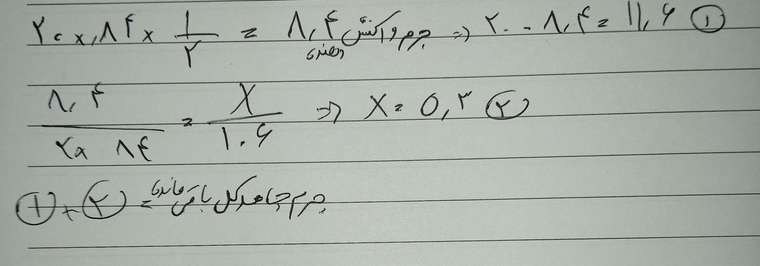 ۲۰ × ۰٫۸۴ × ۱/۲ = ۸٫۴ جرم واکنش دهنده ⇒ ۲۰ - ۸٫۴ = ۱۱٫۶ ①
۸٫۴ / ۲×۸۴ = X / ۱۰۶ ⇒ X = ۵٫۳ ②
① + ② = جرم جامد کل باقی مانده